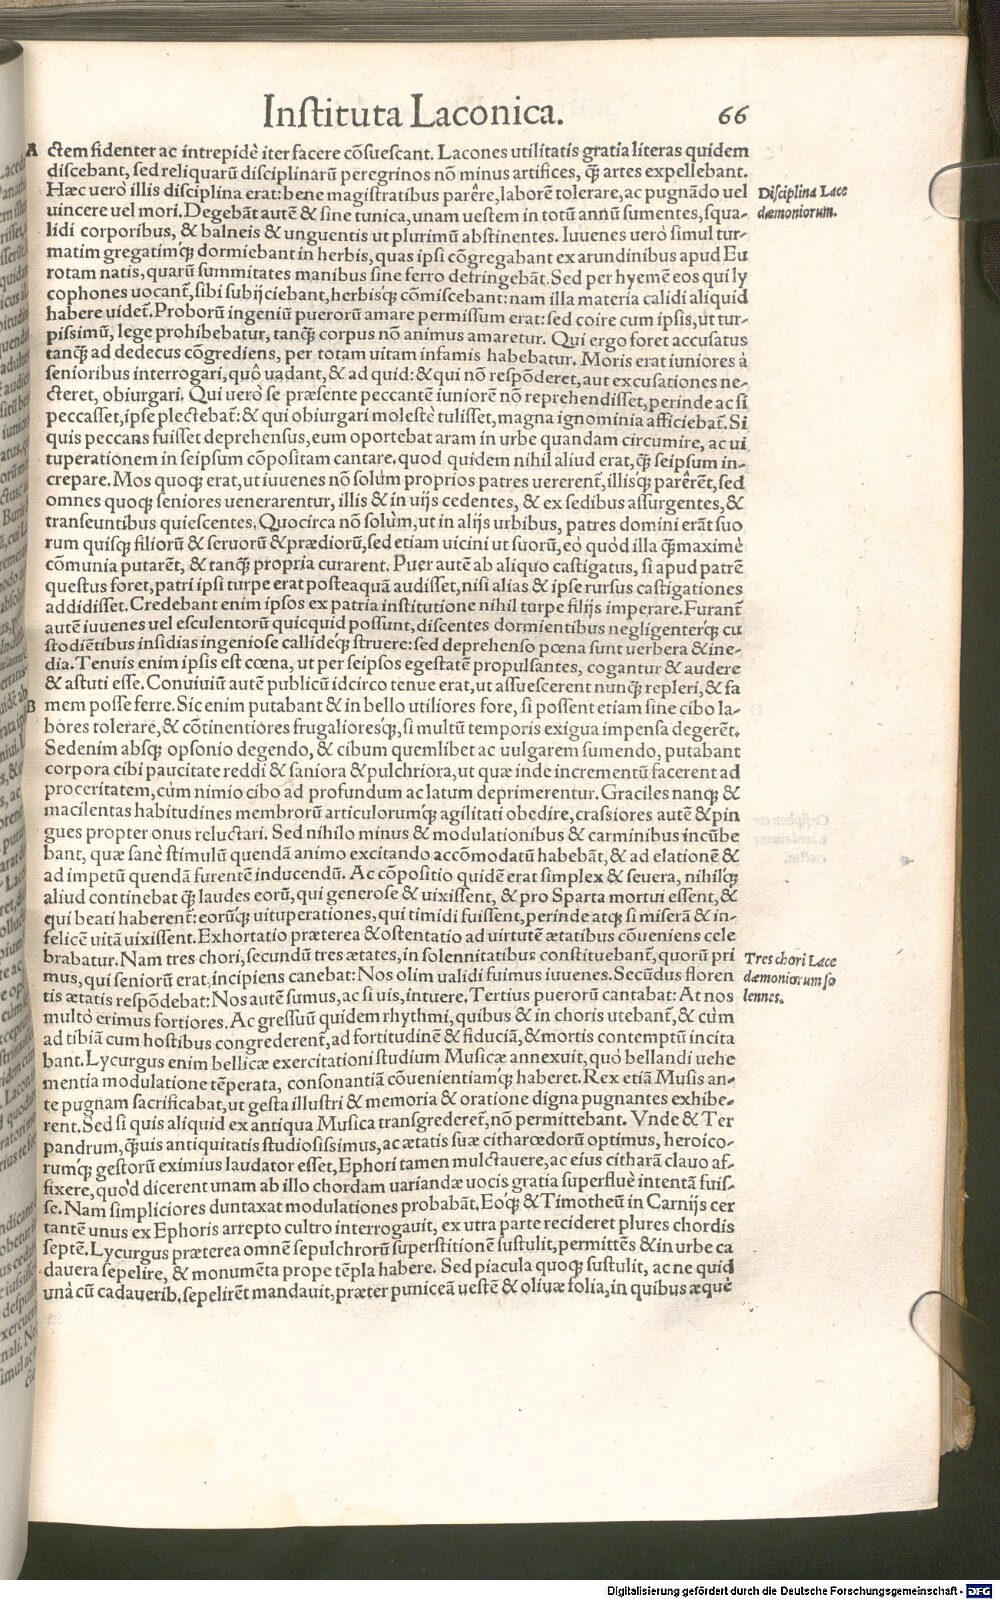 Inſtituta Laconica. 66
A ctem fidenter ac intrepidè iter facere cōſueſcant. Lacones utilitatis gratia literas quidem
diſcebant, ſed reliquarũ diſciplinarũ peregrinos nõ minus artifices, q̃ȝ artes expellebant.
Hæc uerò illis diſciplina erat: bene magiſtratibus parêre, laborē tolerare, ac pugnãdo uel
Diſciplina Lace
uincere uel mori. Degebãt autē & ſine tunica, unam ueſtem in totũ annũ ſumentes, ſqua-
dæmoniorum.
lidi corporibus, & balneis & unguentis ut plurimũ abſtinentes. Iuuenes uerò ſimul tur-
matim gregatimq́ȝ dormiebant in herbis, quas ipſi cōgregabant ex arundinibus apud Eu
rotam natis, quarũ ſummitates manibus ſine ferro defringebãt. Sed per hyemē eos qui ly
cophones uocant̃, ſibi ſubijciebant, herbisq́ȝ cōmiſcebant: nam illa materia calidi aliquid
habere uidet̃. Proborũ ingeniũ puerorũ amare permiſſum erat: ſed coire cum ipſis, ut tur-
piſſimũ, lege prohibebatur, tanq̃ȝ corpus nõ animus amaretur. Qui ergo foret accuſatus
tanq̃ȝ ad dedecus cōgrediens, per totam uitam infamis habebatur. Moris erat iuniores à
ſenioribus interrogari, quô uadant, & ad quid: & qui nõ reſpõderet, aut excuſationes ne-
cteret, obiurgari. Qui uerò ſe præſente peccantē iuniorē nõ reprehendiſſet, perinde ac ſi
peccaſſet, ipſe plectebat̃: & qui obiurgari moleſtè tuliſſet, magna ignominia afficiebat̃. Si
quis peccans fuiſſet deprehenſus, eum oportebat aram in urbe quandam circumire, ac ui
tuperationem in ſeipſum cōpoſitam cantare, quod quidem nihil aliud erat, q̃ȝ ſeipſum in-
crepare. Mos quoqȝ erat, ut iuuenes nõ ſolùm proprios patres uererent̃, illisqȝ parêrēt, ſed
omnes quoqȝ ſeniores uenerarentur, illis & in uijs cedentes, & ex ſedibus aſſurgentes, &
tranſeuntibus quieſcentes. Quocirca nõ ſolùm, ut in alijs urbibus, patres domini erãt ſuo
rum quiſqȝ filiorũ & ſeruorũ & prædiorũ, ſed etiam uicini ut ſuorũ, eò quòd illa q̃ȝmaximè
cōmunia putarēt, & tanq̃ȝ propria curarent. Puer autē ab aliquo caſtigatus, ſi apud patrē
queſtus foret, patri ipſi turpe erat poſteaquã audiſſet, niſi alias & ipſe rurſus caſtigationes
addidiſſet. Credebant enim ipſos ex patria inſtitutione nihil turpe filijs imperare. Furant̃
autē iuuenes uel eſculentorũ quicquid poſſunt, diſcentes dormientibus negligenterq́ȝ cu
ſtodiētibus inſidias ingenioſe callideq́ȝ ſtruere: ſed deprehenſo pœna ſunt uerbera & ine-
dia. Tenuis enim ipſis eſt cœna, ut per ſeipſos egeſtatē propulſantes, cogantur & audere
& aſtuti eſſe. Conuiuiũ autē publicũ idcirco tenue erat, ut aſſueſcerent nunq̃ȝ repleri, & fa
B mem poſſe ferre. Sic enim putabant & in bello utiliores fore, ſi poſſent etiam ſine cibo la-
bores tolerare, & cōtinentiores frugalioresq́ȝ, ſi multũ temporis exigua impenſa degerēt.
Sedenim abſqȝ opſonio degendo, & cibum quemlibet ac uulgarem ſumendo, putabant
corpora cibi paucitate reddi & ſaniora & pulchriora, ut quæ inde incrementũ facerent ad
proceritatem, cùm nimio cibo ad profundum ac latum deprimerentur. Graciles nanqȝ &
macilentas habitudines membrorũ articulorumq́ȝ agilitati obedire, craſſiores autē & pin
gues propter onus reluctari. Sed nihilo minus & modulationibus & carminibus incũbe
bant, quæ ſanè ſtimulũ quendã animo excitando accōmodatũ habebãt, & ad elationē &
ad impetũ quendã furentē inducendũ. Ac cōpoſitio quidē erat ſimplex & ſeuera, nihilq́ȝ
aliud continebat q̃ȝ laudes eorũ, qui generoſe & uixiſſent, & pro Sparta mortui eſſent, &
qui beati haberent̃: eorũq́ȝ uituperationes, qui timidi fuiſſent, perinde atqȝ ſi miſerã & in-
felicē uitã uixiſſent. Exhortatio præterea & oſtentatio ad uirtutē ætatibus cōueniens cele
brabatur. Nam tres chori, ſecundũ tres ætates, in ſolennitatibus conſtituebant̃, quorũ pri
Tres chori Lace
mus, qui ſeniorũ erat, incipiens canebat: Nos olim ualidi fuimus iuuenes. Secũdus floren
dæmoniorum ſo
tis ætatis reſpõdebat: Nos autē ſumus, ac ſi uis, intuere. Tertius puerorũ cantabat: At nos
lennes.
multò erimus fortiores. Ac greſſuũ quidem rhythmi, quibus & in choris utebant̃, & cùm
ad tibiã cum hoſtibus congrederent̃, ad fortitudinē & fiduciã, & mortis contemptũ incita
bant. Lycurgus enim bellicæ exercitationi ſtudium Muſicæ annexuit, quò bellandi uehe
mentia modulatione tēperata, conſonantiã cōuenientiamq́ȝ haberet. Rex etiã Muſis an-
te pugnam ſacrificabat, ut geſta illuſtri & memoria & oratione digna pugnantes exhibe-
rent. Sed ſi quis aliquid ex antiqua Muſica tranſgrederet̃, nõ permittebant. Vnde & Ter
pandrum, q̃ȝuis antiquitatis ſtudioſiſſimus, ac ætatis ſuæ citharœdorũ optimus, heroico-
rumq́ȝ geſtorũ eximius laudator eſſet, Ephori tamen mulctauere, ac eius citharã clauo af-
fixere, quòd dicerent unam ab illo chordam uariandæ uocis gratia ſuperfluè intentã fuiſ-
ſe. Nam ſimpliciores duntaxat modulationes probabãt. Eoqȝ & Timotheũ in Carnijs cer
tantē unus ex Ephoris arrepto cultro interrogauit, ex utra parte recideret plures chordis
ſeptē. Lycurgus præterea omnē ſepulchrorũ ſuperſtitionē ſuſtulit, permittēs & in urbe ca
dauera ſepelire, & monumēta prope tēpla habere. Sed piacula quoqȝ ſuſtulit, ac ne quid
unà cũ cadauerib. ſepelirēt mandauit, præter puniceã ueſtē & oliuæ folia, in quibus æquè
Digitalisierung gefördert durch die Deutsche Forschungsgemeinschaft - DFG